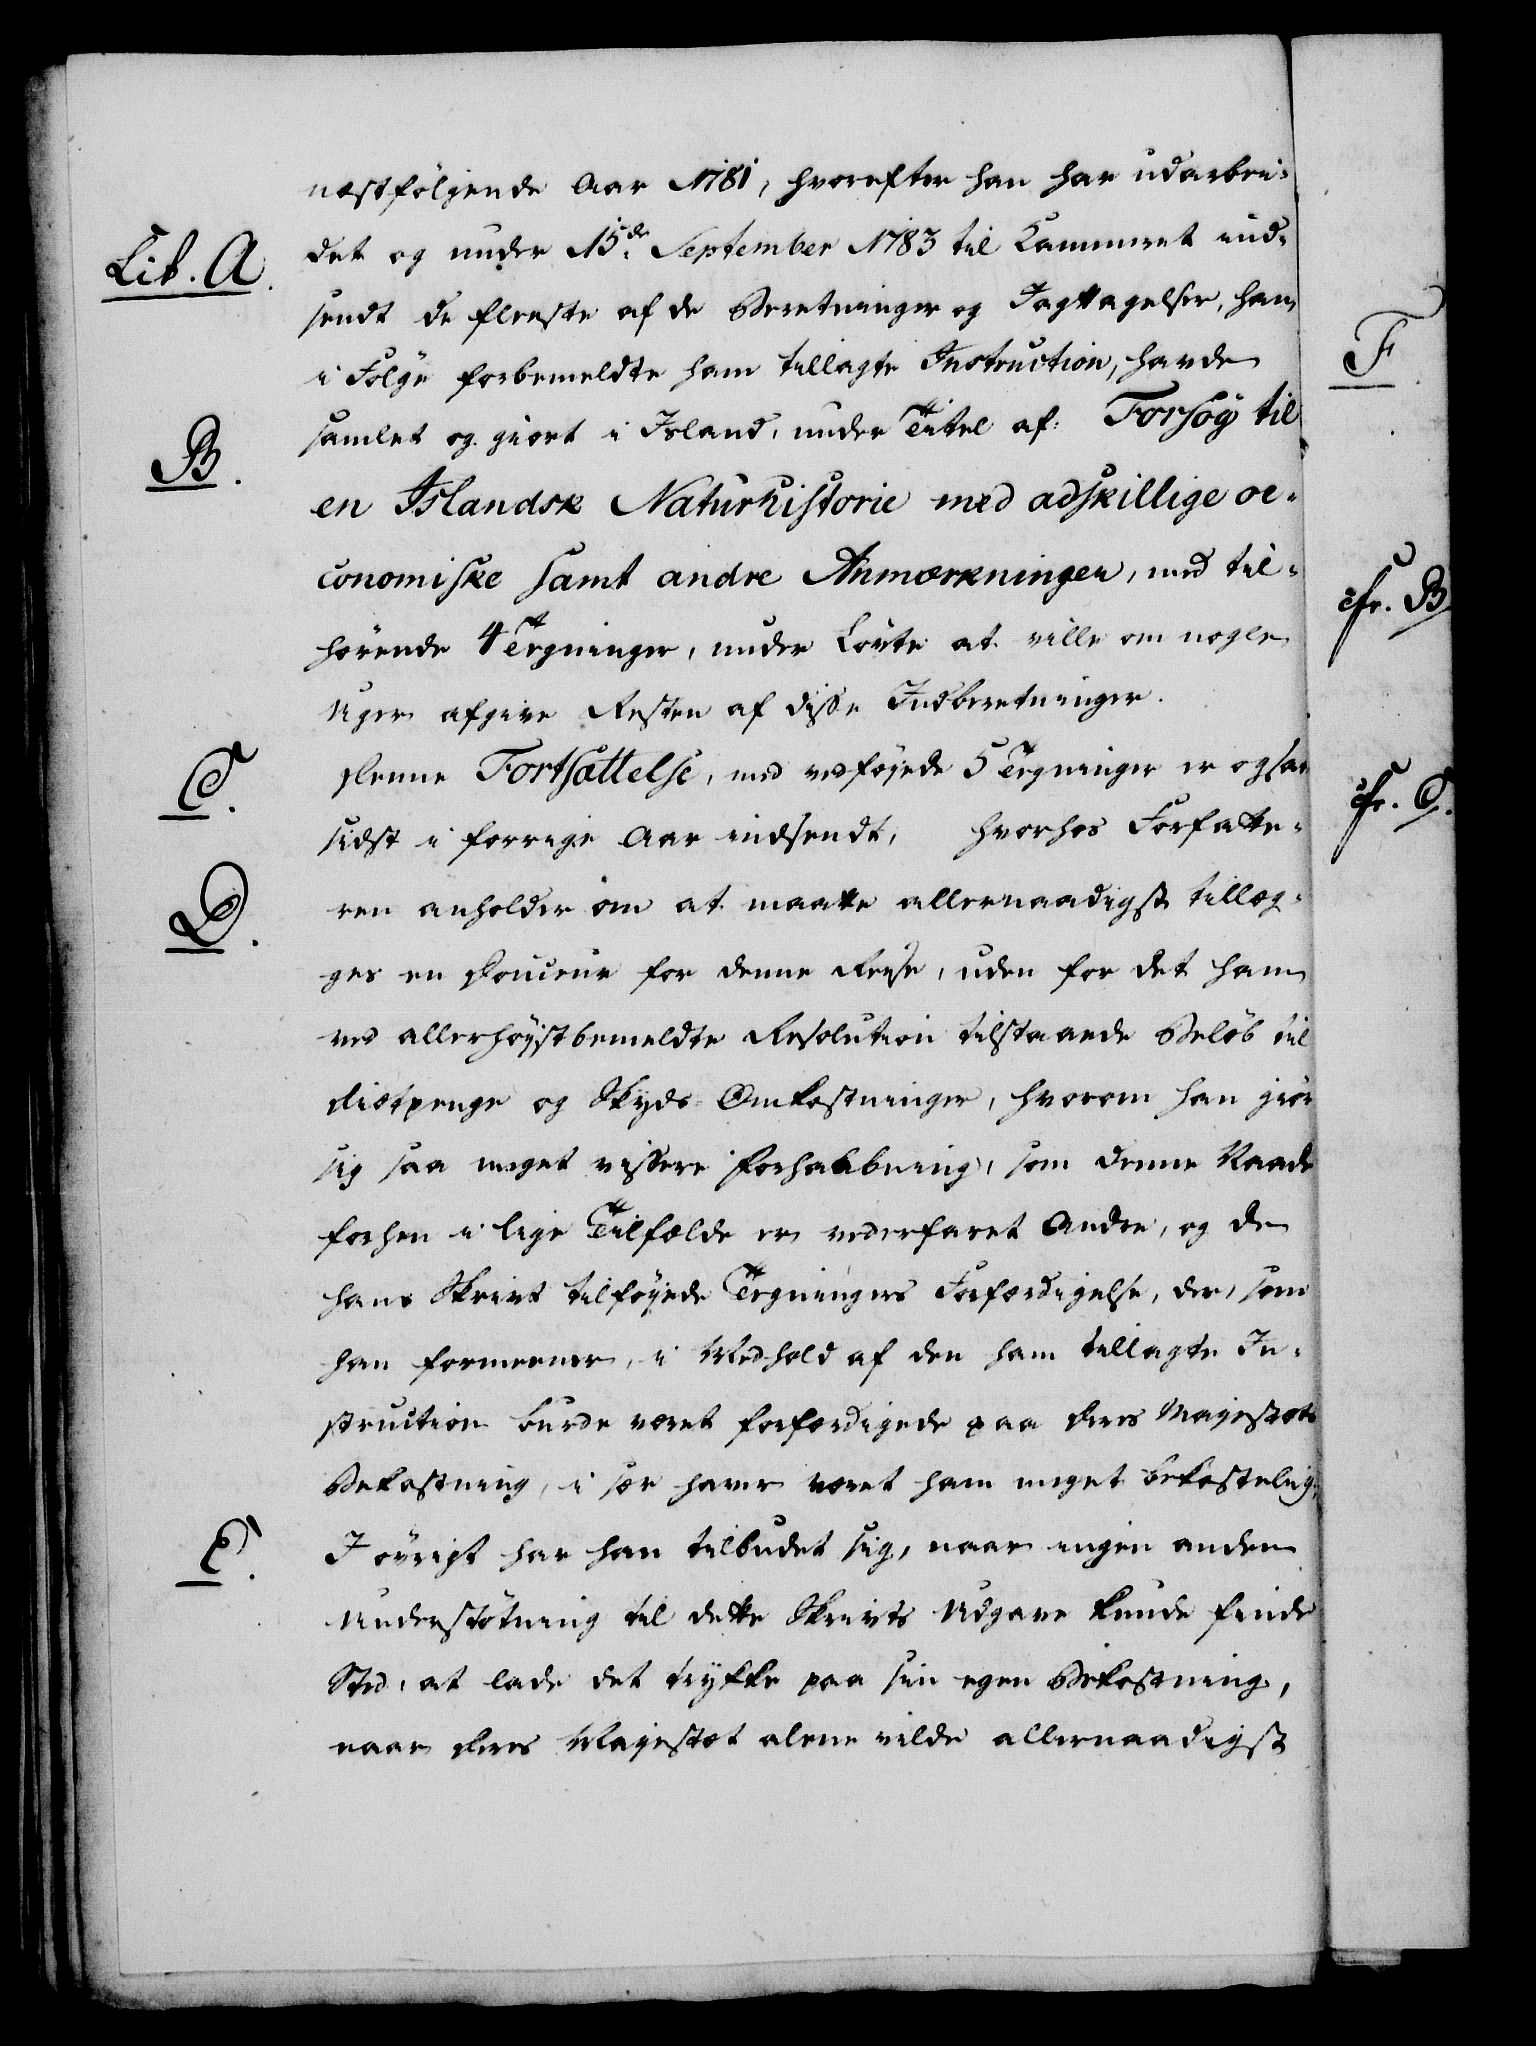 næstfölgende Aar 1781, hvorefter han har udarbei-
Lit. A.
det og under 15de September 1783 til Kammeret ind-
sendt de fleeste af de Beretninger og Iagttagelser, han
i Folge forbemeldte ham tillagte Instruction, havde
samlet og giort i Island, under Titel af: Forsög til
B.
en Islandsk Naturhistorie med adskillige oe-
conomiske samt andre Anmærkninger, med til-
hörende 4 Tegninger, under Lövte at ville om nogle
Uger afgive Resten af disse Indberetninger.
C.
Denne Fortsættelse, med vedföjede 5 Tegninger er ogsaa
sidst i forrige Aar indsendt, hvorhos Forfatte-
D.
ren anholder om at maatte allernaadigst tillæg-
ges en Douceur for denne Reise, uden for det ham
ved allerhöystbemeldte Resolution tilstaaede Belöb til
Diætpenge og Skyds-Omkostninger, hvorom han giör
sig saa meget vissere Forhaabning, som denne Naade
forhen i lige Tilfælde er vederfaret Andre, og de
hans Skrivt tilföyede Tegningers Forfærdigelse, der, som
han formeener, i Medhold af den ham tillagte In-
struction burde været forfærdigede paa Deres Majestæts
Bekostning, i sær haver været ham meget bekostelig.
E.
I övrigt har han tilbudet sig, naar ingen anden
Understötning til dette Skrivts Udgave kunde finde
Sted, at lade det trykke paa sin egen Bekostning,
naar Deres Majestæt alene vilde allernaadigst
F.
cfr. B
cfr. C.